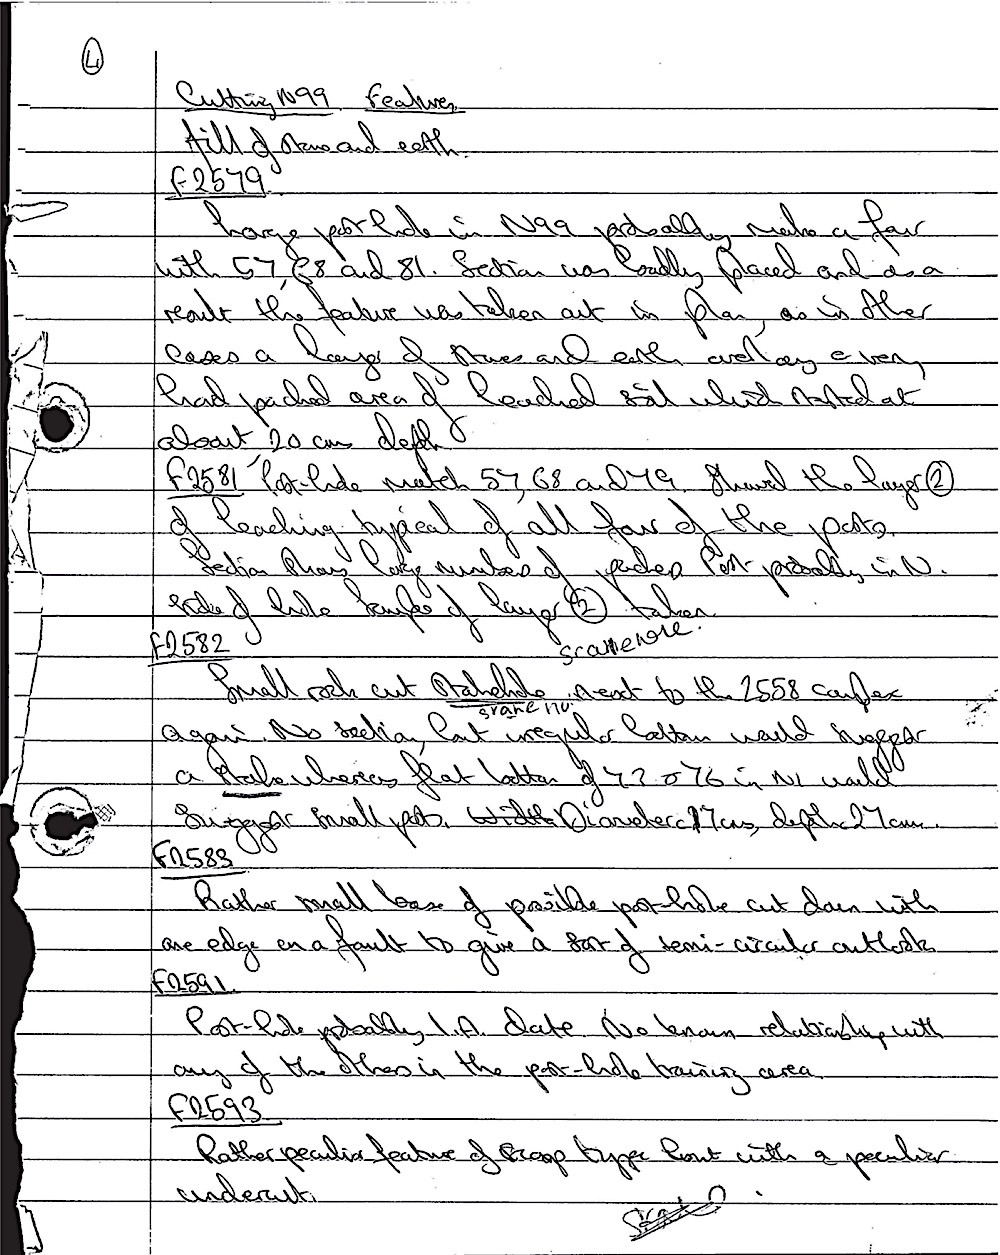 4
Cutting N99 Features
fill of stone and earth.
F2579
Large post hole in N99 probably make a four
with 57, 68 and 81. Section was badly placed and as a
result the feature was taken out in plan, as in other
cases a layer of stones and earth overlay a very
hard packed area of leached soil which started at
about 20 cms depth
F2581 Post-hole match 57, 68 and 79. Showed the layer 2
of leaching typical of all four of the posts.
Section shows large number of packers Post probably in N.
side of hole Sample of layer 2 taken.
F2582
Small rock cut Stakehole next to the 2558 complex
again. No section, but irregular bottom would suggest
a stake whereas flat bottom of 73 or 76 in N1 would
suggest small posts. Diameter 17cms, depth 27cm.
F2583
Rather small base of possible post-hole cut down with
one edge on a fault to give a sort of semi-circular outlook
F2591.
Post-hole probably I.A. date No known relationship with
any of the others in the post-hole training area.
F2593.
Rather peculiar feature of scoop type but with a peculiar
undercut.